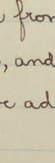 from
, and
ad